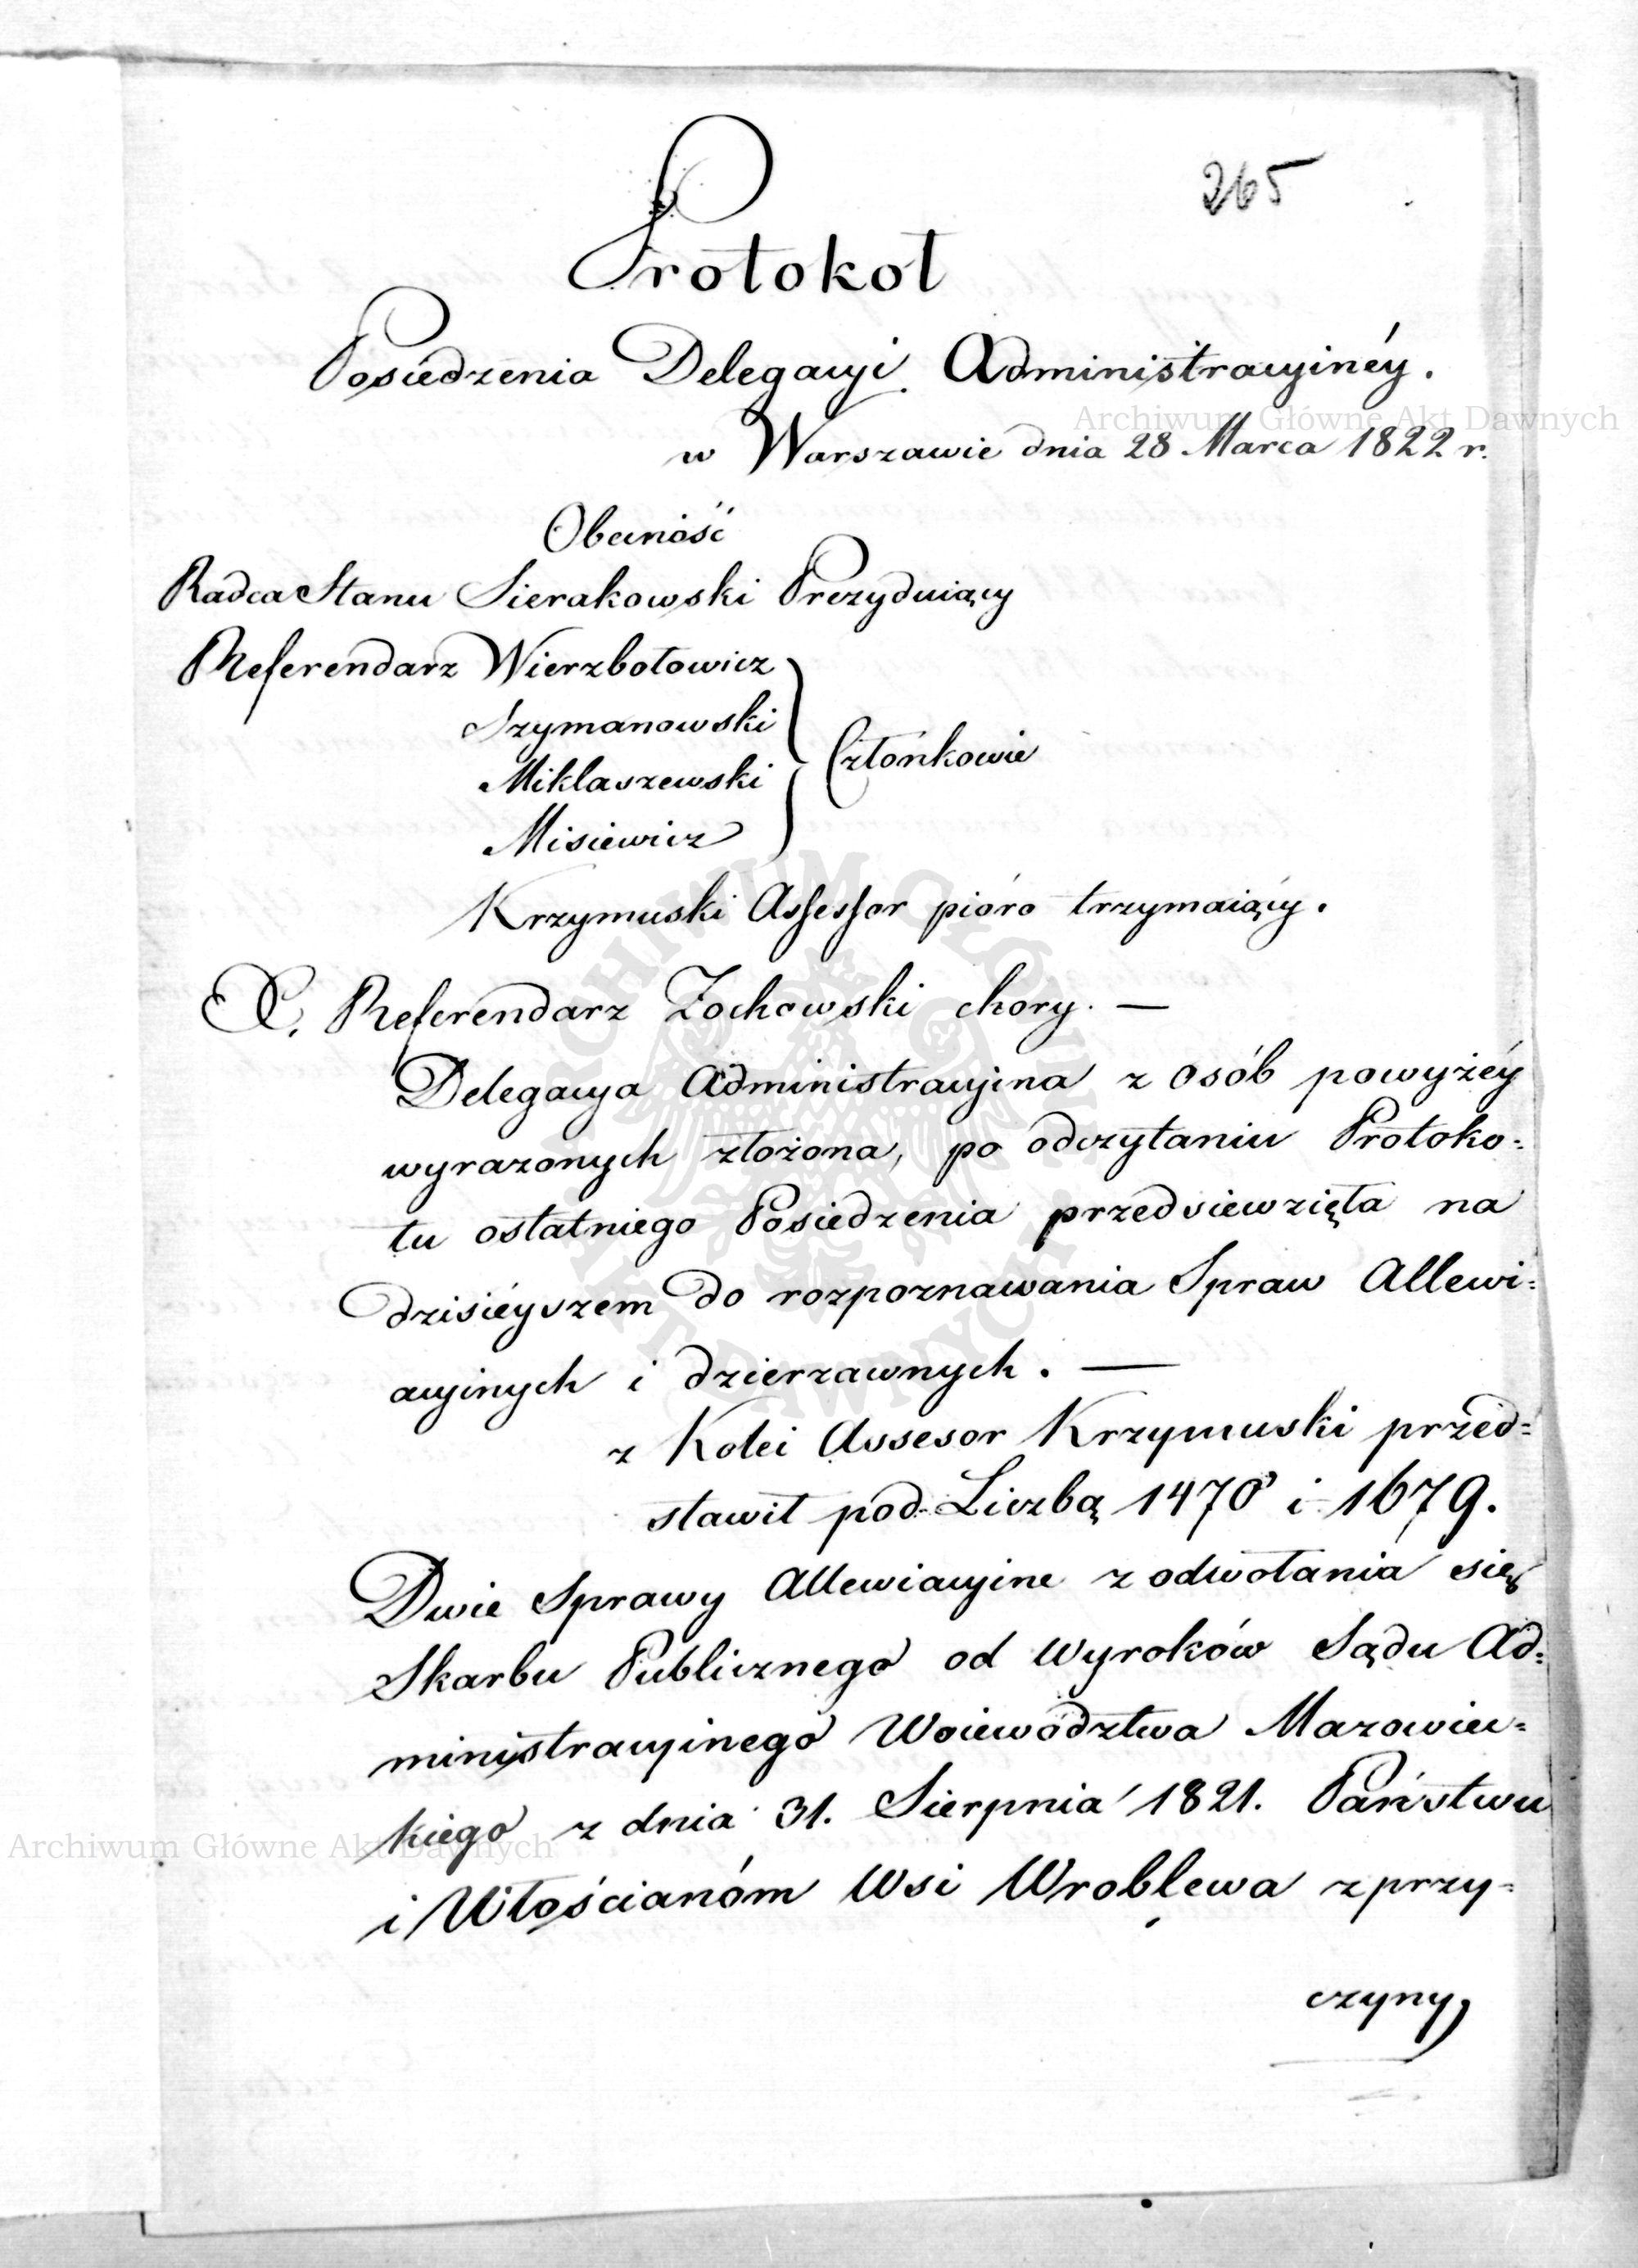 265
Protokoł
Posiedzenia Delegacyi Administracyinéy.
w Warszawie dnia 28 Marca 1822 r.
Obecność
Radca Stanu Sierakowski Prezyduiący
Referendarz Wierzbołowicz
Szymanowski
Miklaszewski
Członkowie
Misiewicz
Krzymuski Assessor pióro trzymaiący.
X. Referendarz Zochowski chory. —
Delegacya Administracyina z osób powyżéy
wyrazonych złożona, po odczytaniu Protoko=
łu ostatniego Posiedzenia przedsiewzięła na
dzisiéyszem do rozpoznawania Spraw Allewi=
acyinych i dzierzawnych. —
z Kolei Assesor Krzymuski przed=
stawił pod Liczbą 1470 i 1679.
Dwie Sprawy Allewiacyine z odwołania się
Skarbu Publicznego od Wyroków Sądu Ad=
ministracyinego Woiewództwa Mazowiec=
kiego z dnia 31. Sierpnia 1821. Państwu
i Włościanóm Wsi Wroblewa z przy=
czyny,
Archiwum Główne Akt Dawnych
Archiwum Główne Akt Dawnych
ARCHIWUM GŁÓWNE AKT DAWNYCH